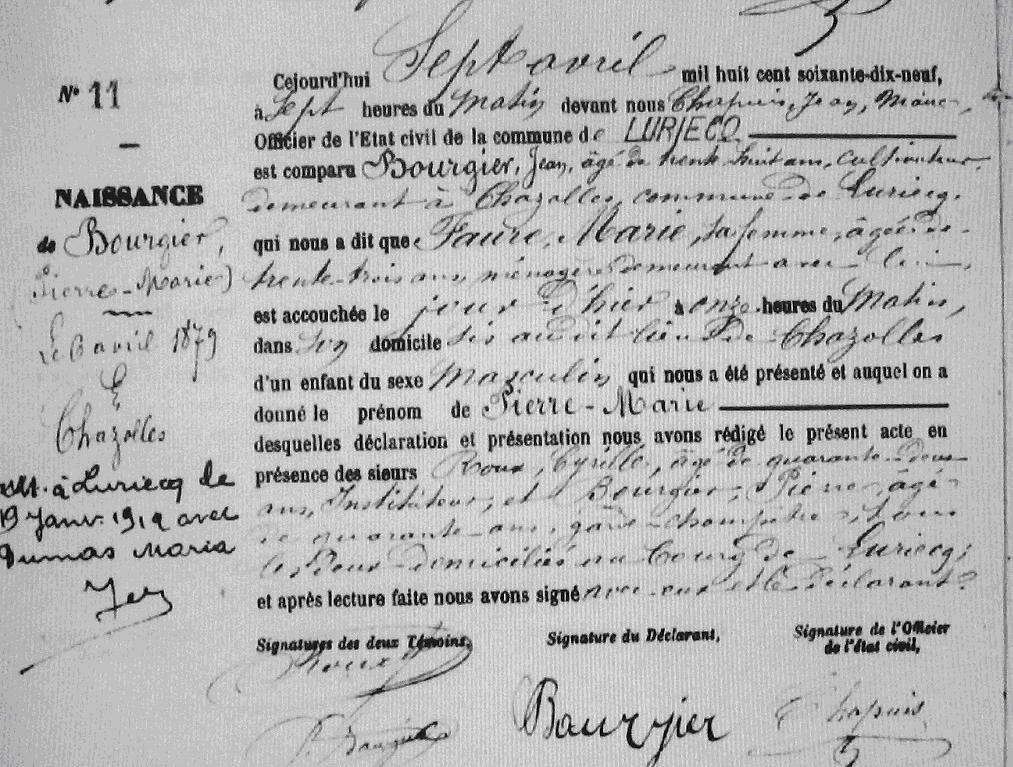 N° 11
NAISSANCE
de Bourgier,
Pierre-Marie)
Le 6 avril 1879
à
Chazolles
Mt. à Luriecq le
19 Janv. 1912 avec
Dumas Maria
Cejourd'hui Sept avril mil huit cent soixante-dix-neuf,
à Sept heures du Matin devant nous Chapuis, Jean, Maire,
Officier de l'Etat civil de la commune de LURIECQ
est comparu Bourgier, Jean, âgé de trente huit ans, cultivateur
demeurant à Chazolles, commune de Luriecq,
qui nous a dit que Faure, Marie, sa femme, âgée de
trente-trois ans, ménagère demeurant avec lui,
est accouchée le jour d'hier à onze heures du Matin,
dans son domicile sis audit lieu de Chazolles
d'un enfant du sexe Masculin qui nous a été présenté et auquel on a
donné le prénom de Pierre-Marie
desquelles déclaration et présentation nous avons rédigé le présent acte en
présence des sieurs Roux, Cyrille, âgé de quarante-deux
ans, Instituteur, et Bourgier, Pierre, âgé
de quarante ans, garde-champêtre, tous
les deux domiciliés au Bourg de Luriecq;
et après lecture faite nous avons signé avec eux et le déclarant.
Signatures des deux Témoins,
Signature du Déclarant,
Signature de l'Officier
de l'état civil,
Roux
P. Bourgier
Bourgier
Chapuis